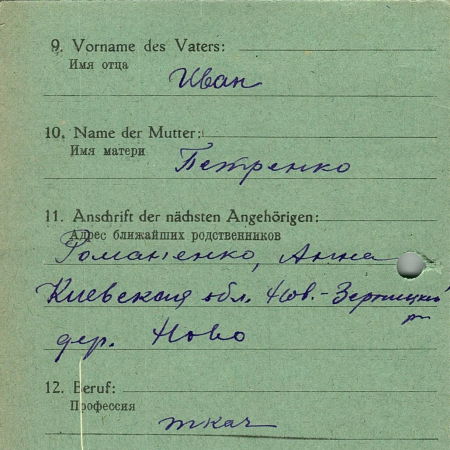 9. Vorname des Vaters:
Имя отца
Иван
10. Name der Mutter:
Имя матери
Петренко
11. Anschrift der nächsten Angehörigen:
Адрес ближайших родственников
Романенко, Анна
Киевская обл. Нов.-
дер. Ново
12. Beruf:
Профессия
ткач